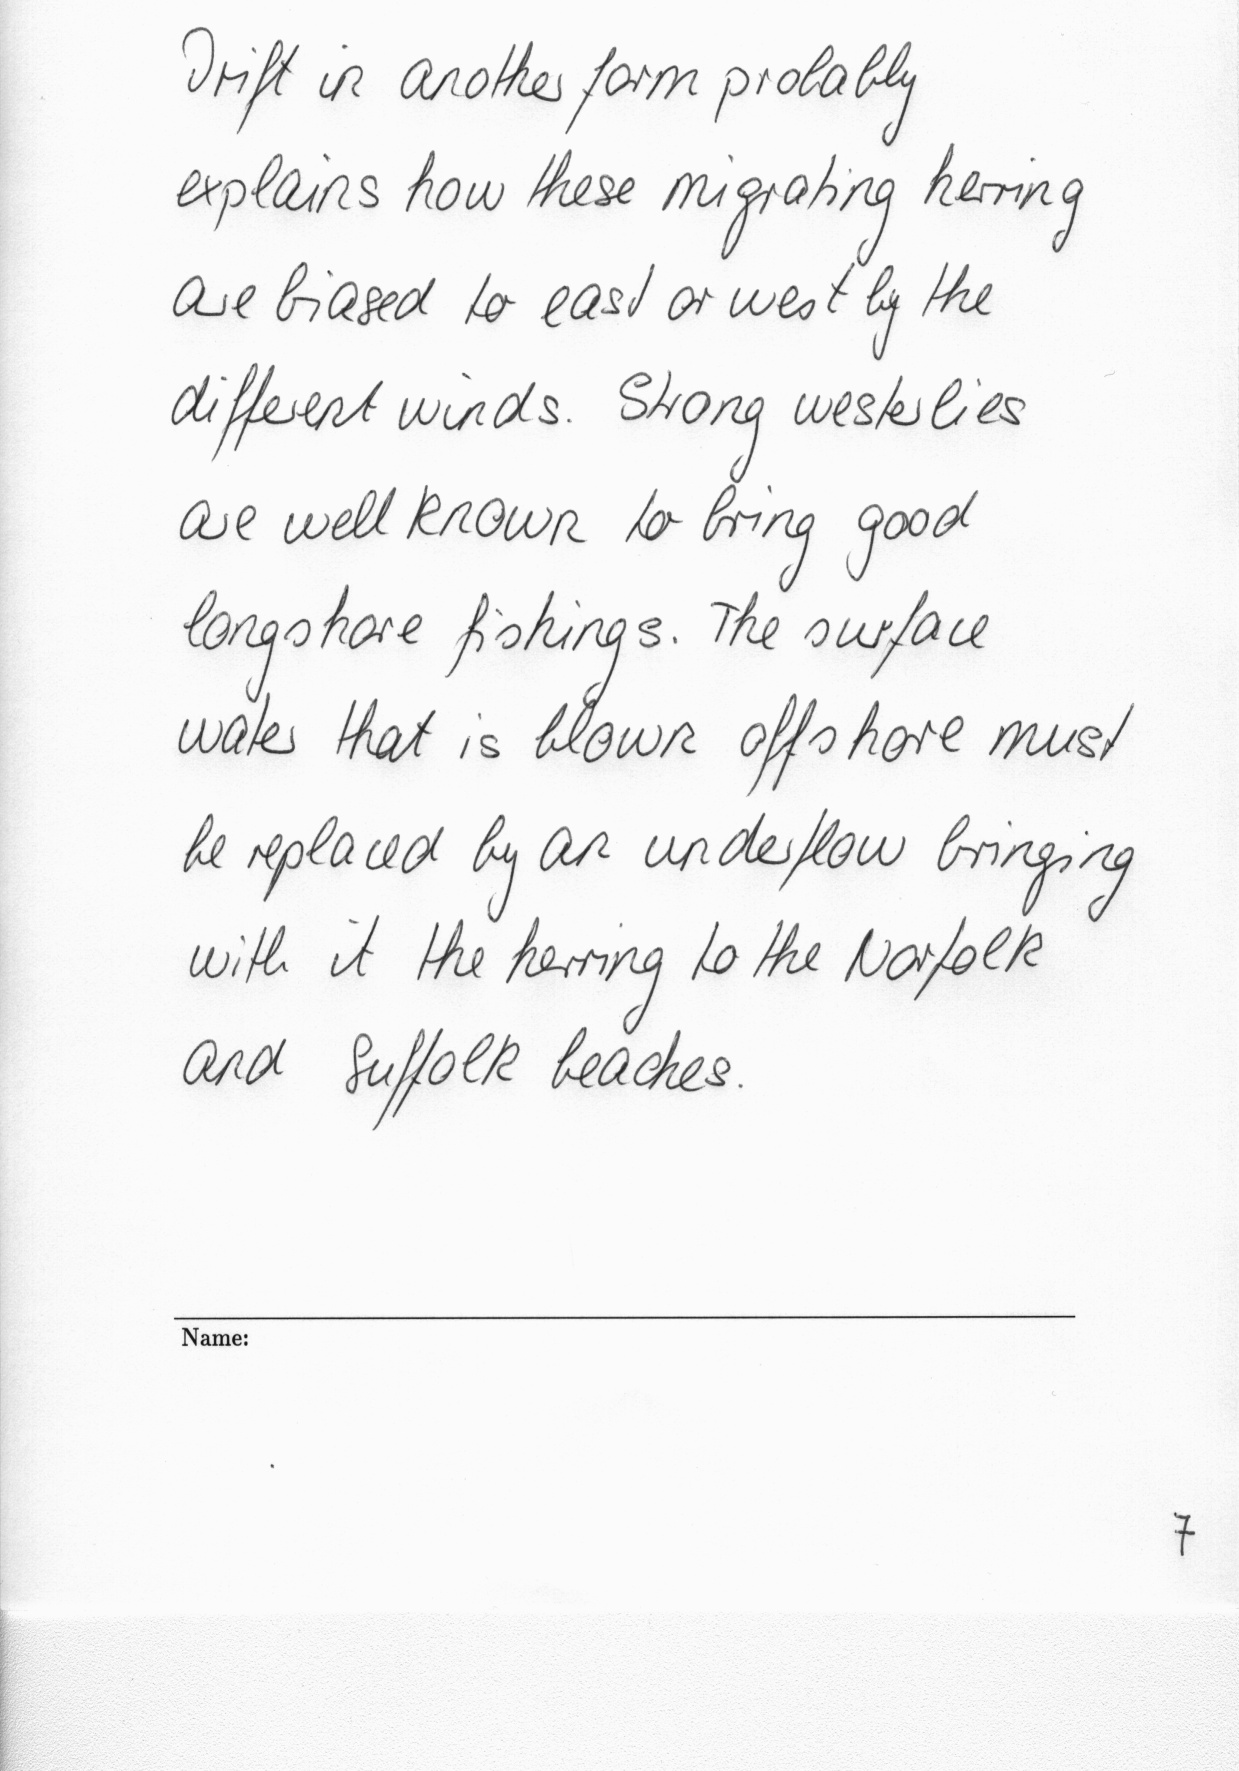 Drift in another form probably
explains how these migrating herring
are biased to east or west by the
different winds. Strong westerlies
are well known to bring good
longshore fishings. The surface
water that is blown offshore must
be replaced by an underflow bringing
with it the herring to the Norfolk
and Suffolk beaches.
Name:
7